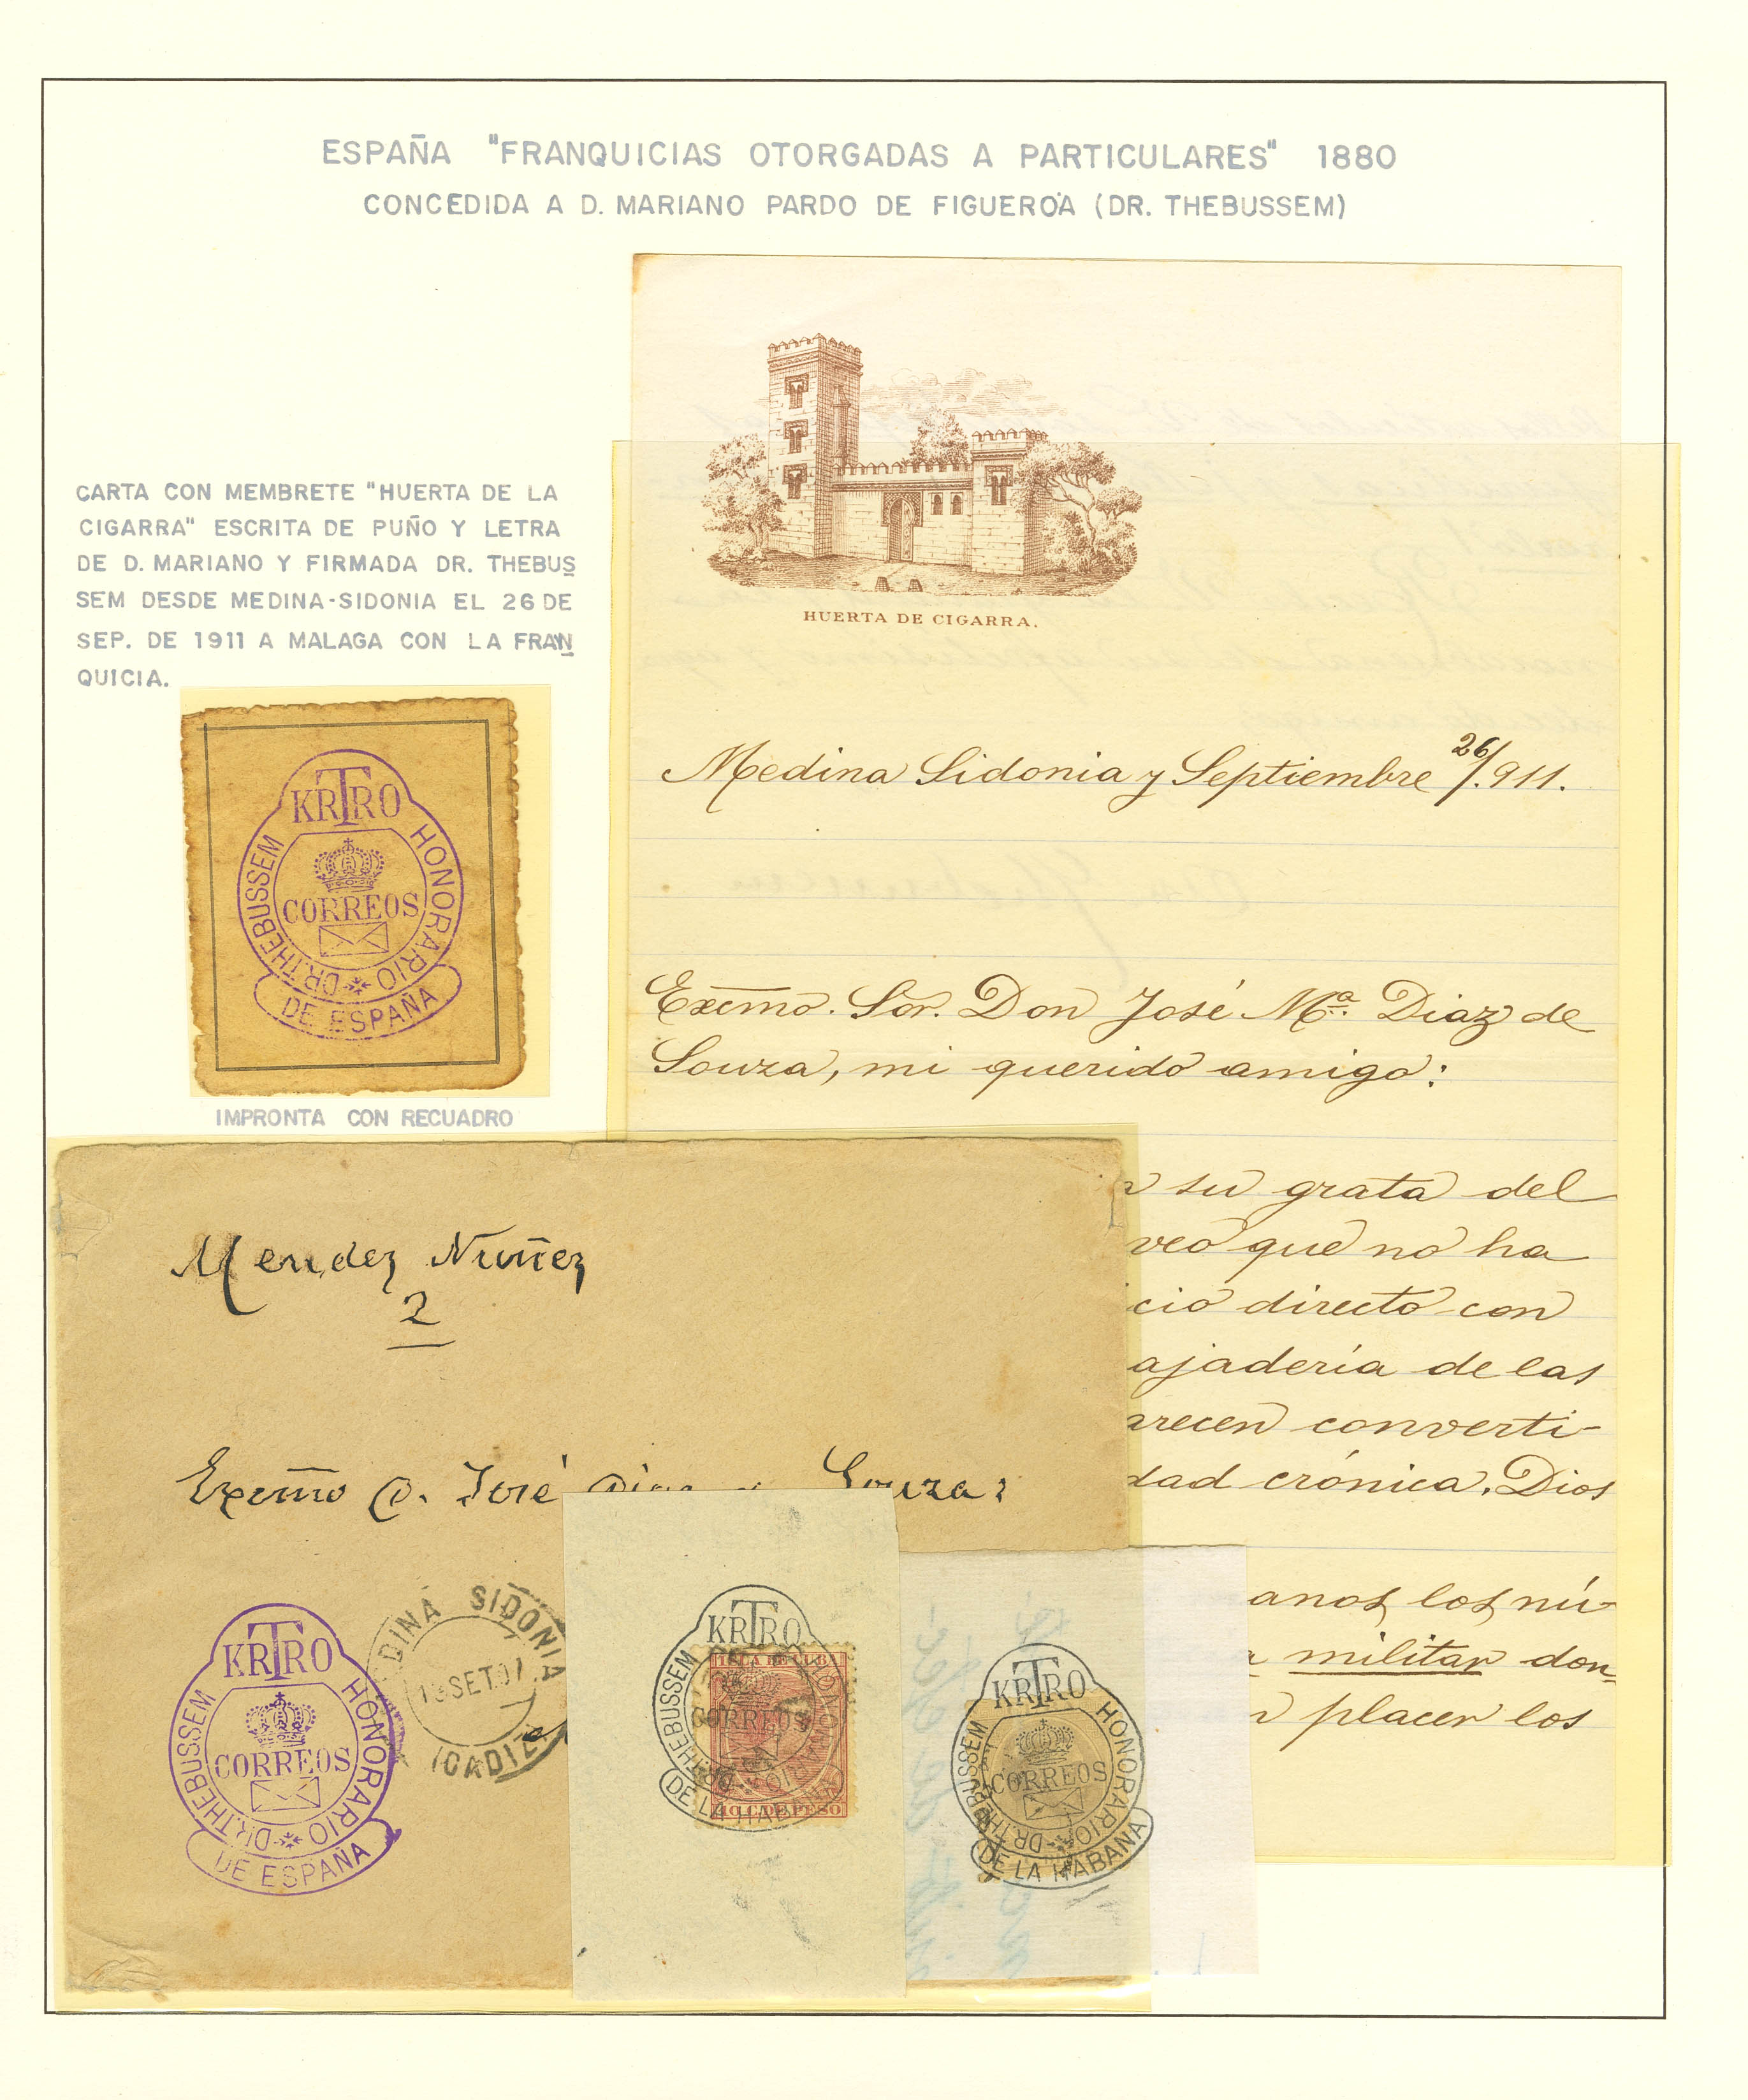 ESPAÑA "FRANQUICIAS OTORGADAS A PARTICULARES" 1880
CONCEDIDA A D. MARIANO PARDO DE FIGUEROA (DR. THEBUSSEM)
CARTA CON MEMBRETE "HUERTA DE LA
CIGARRA" ESCRITA DE PUÑO Y LETRA
DE D. MARIANO Y FIRMADA DR. THEBUS
SEM DESDE MEDINA-SIDONIA EL 26 DE
SEP. DE 1911 A MALAGA CON LA FRAN
QUICIA.
KRTRO
HONORARIO
DR. THEBUSSEM
CORREOS
DE ESPAÑA
IMPRONTA CON RECUADRO
HUERTA DE CIGARRA.
Medina Sidonia y Septiembre 26/.911.
Excmo. Sor. Don José Mª. Diaz de
Souza, mi querido amigo:
su grata del
veo que no ha
cio directo con
ajadería de las
arecen converti-
dad crónica. Dios
anos los nú-
militar don-
placer los
Mendez Nuñez
2
Excmo D. José Souza
KRTRO
HONORARIO
DR. THEBUSSEM
CORREOS
DE ESPAÑA
DINA SIDONIA
SET
(CADIZ)
KRTRO
HONORARIO
DR. THEBUSSEM
CORREOS
DE LA HABANA
ISLA DE CUBA
10 C. DE PESO
KRTRO
HONORARIO
DR. THEBUSSEM
CORREOS
DE LA HABANA